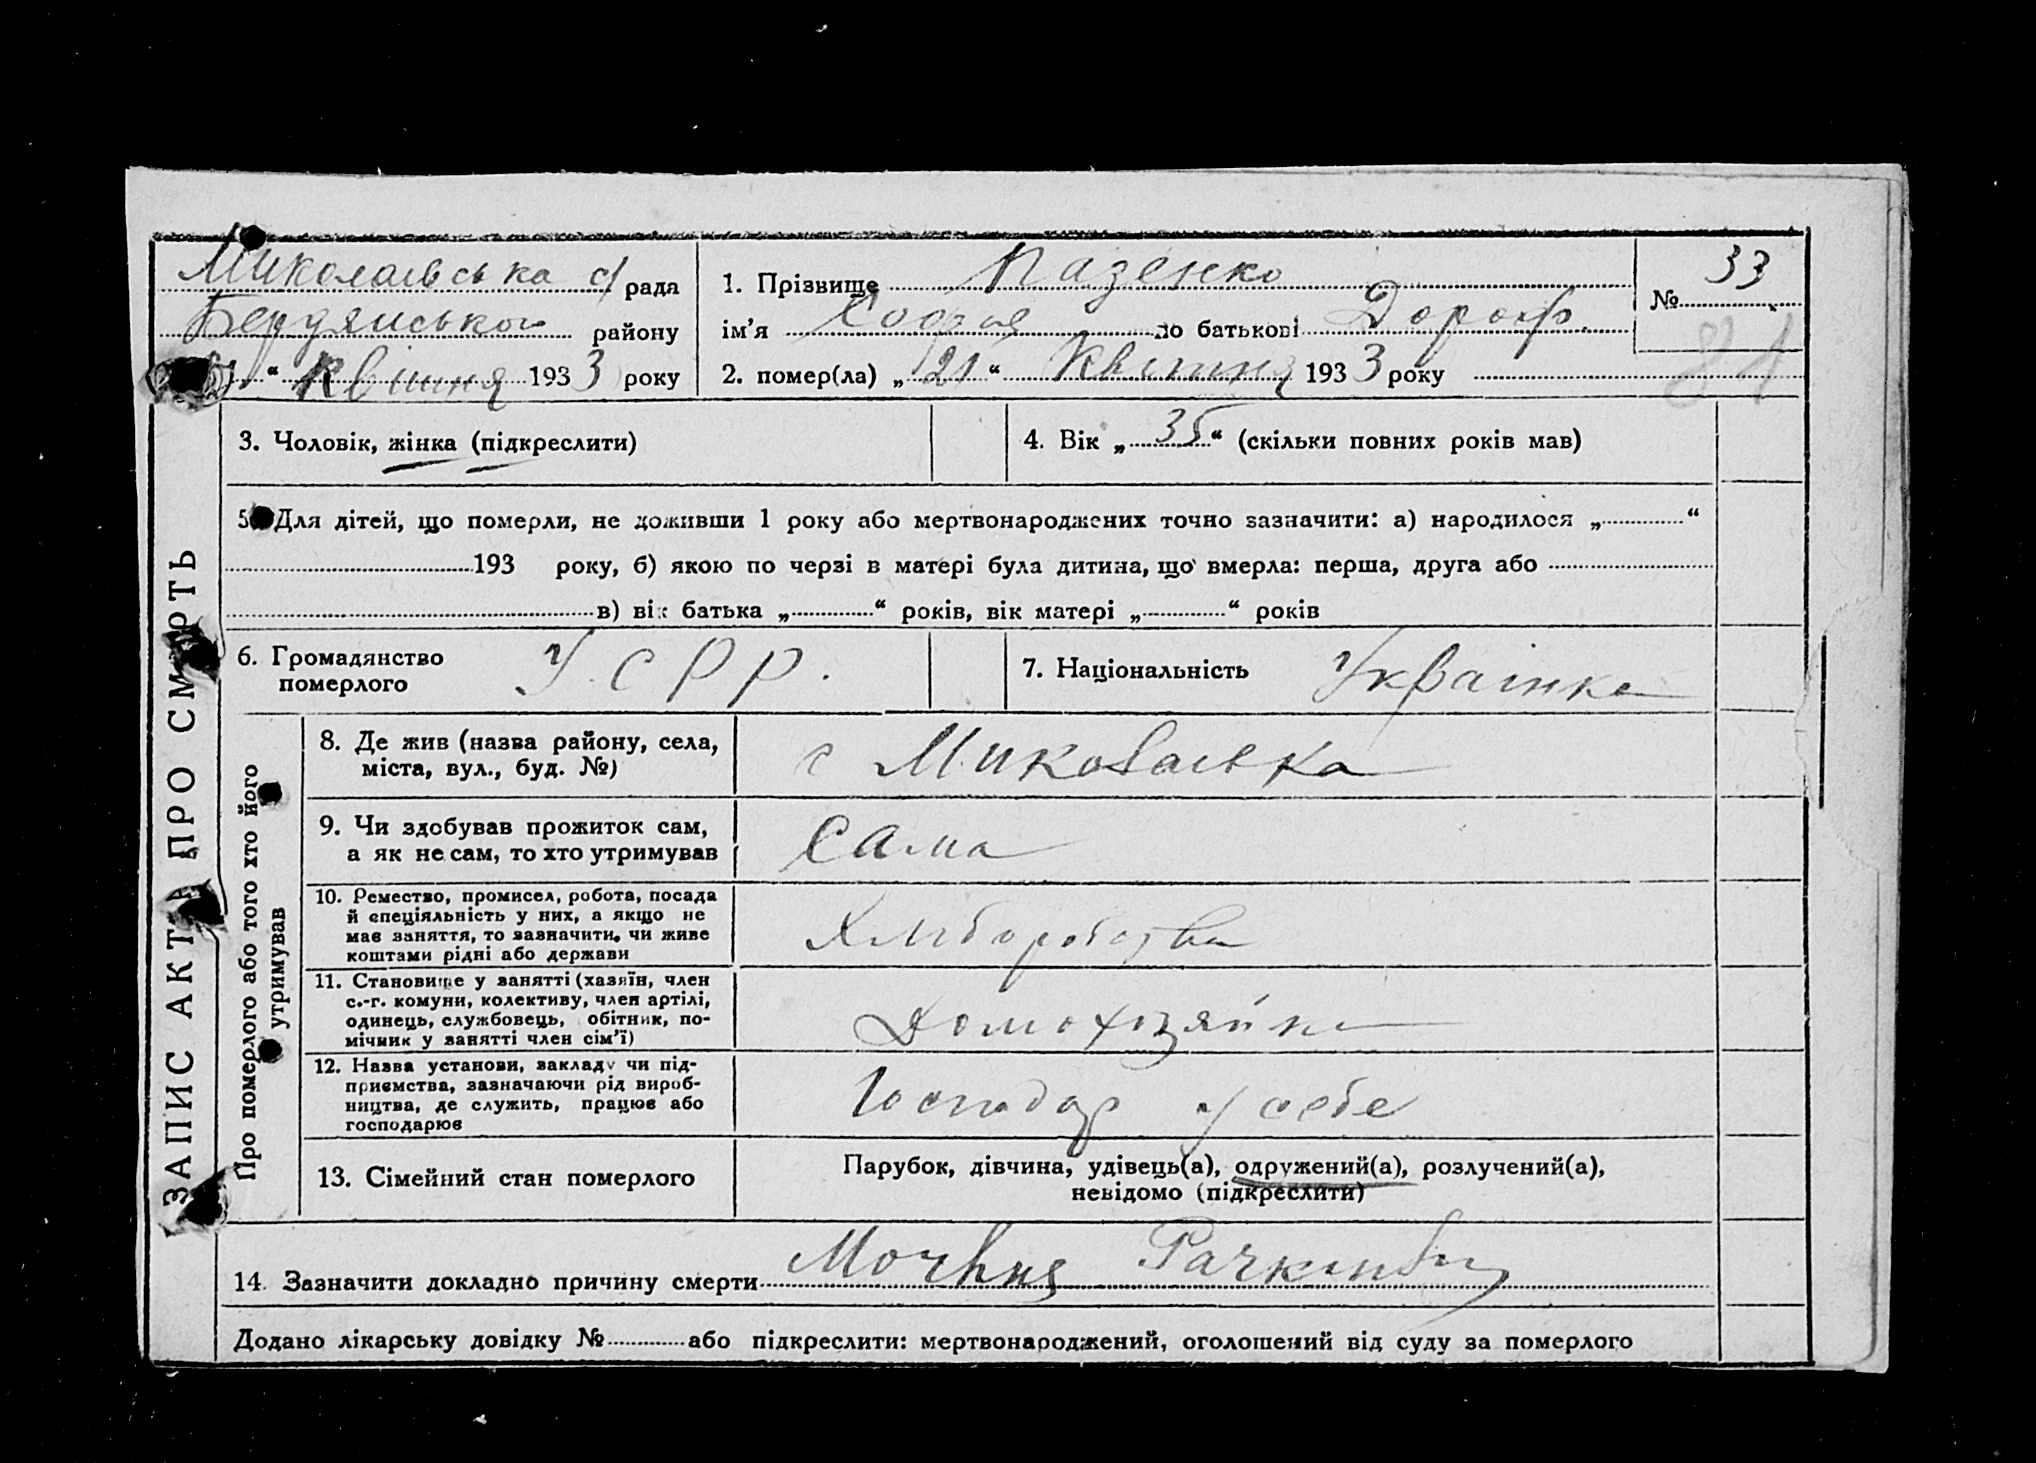 Миколаівська с/рада
Бердянського району
“ Квітня 1933 року
1. Прізвище Пазенко
ім’я Софія по батькові Дороф.
2. помер(ла) „21“ Квітня 1933 року
№ 33
81
3. Чоловік, жінка (підкреслити)
4. Вік „35“ (скільки повних років мав)
5. Для дітей, що померли, не доживши 1 року або мертвонароджених точно зазначити: а) народилося „ “
193 року, б) якою по черзі в матері була дитина, що вмерла: перша, друга або
в) вік батька „ “ років, вік матері „ “ років
6. Громадянство
померлого
УСРР.
7. Національність Украінка
ЗАПИС АКТА ПРО СМЕРТЬ
Про померлого або того хто його
утримував
8. Де жив (назва району, села,
міста, вул., буд. №)
с Миколаівка
9. Чи здобував прожиток сам,
а як не сам, то хто утримував
Сама
10. Ремество, промисел, робота, посада
й спеціяльність у них, а якщо не
має заняття, то зазначити, чи живе
коштами рідні або держави
Хліборобства
11. Становище у занятті (хазяїн, член
с.-г. комуни, колективу, член артілі,
одинець, службовець, обітник, по-
мічник у занятті член сім’ї)
Домохозяйка
12. Назва установи, закладу чи під-
приємства, зазначаючи рід вироб-
ництва, де служить, працює або
господарює
Господар у себе
13. Сімейний стан померлого
Парубок, дівчина, удівець(а), одружений(а), розлучений(а),
невідомо (підкреслити)
14. Зазначити докладно причину смерти
Додано лікарську довідку № або підкреслити: мертвонароджений, оголошений від суду за померлого